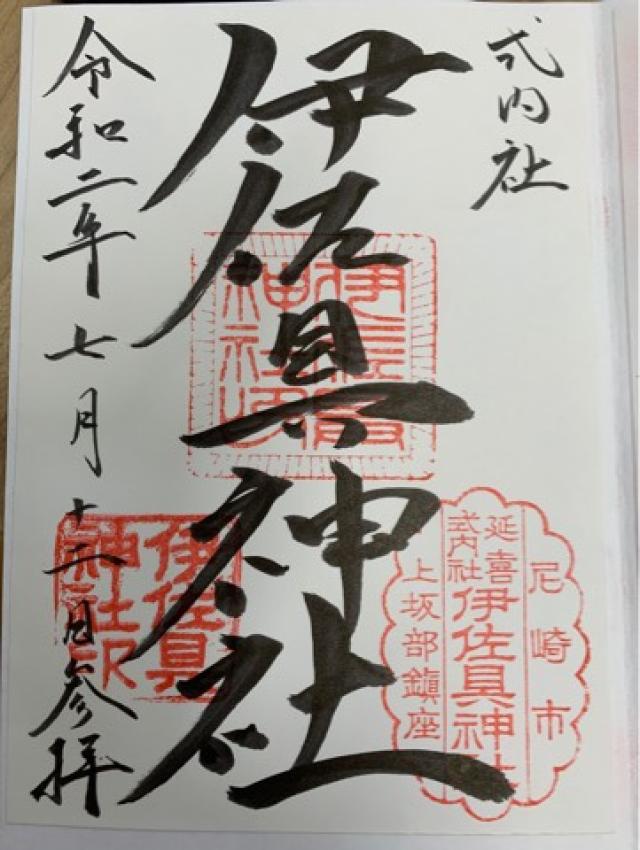 式内社
伊佐具神社
令和二年七月十二日参拝
尼崎市
延喜
式内社
伊佐具神社
上坂部鎮座
伊佐具
神社印